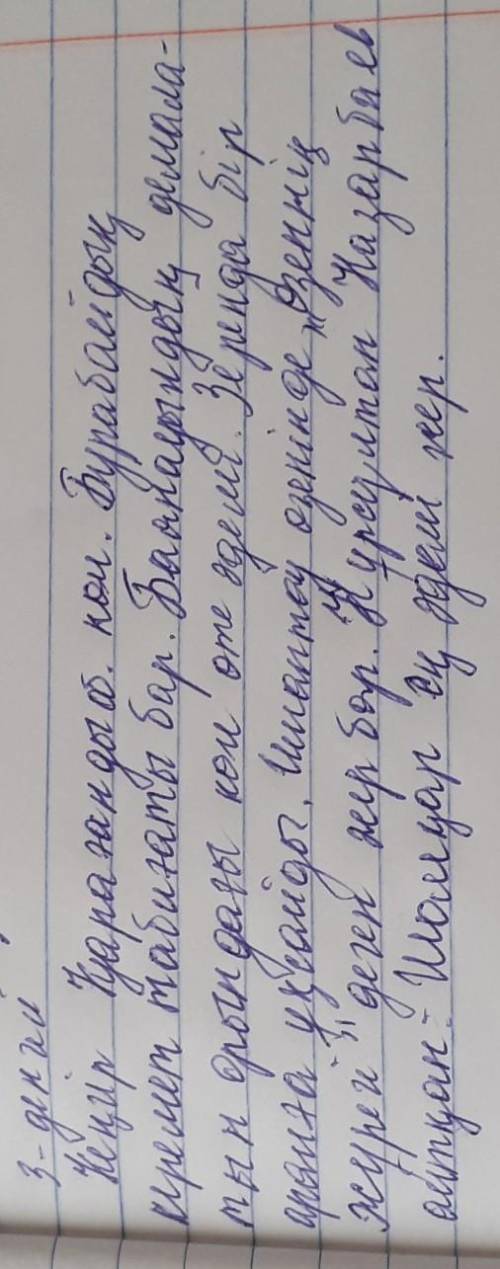 3-деңгей
Кеңгір Қарағандыоб. көл. Бурабайдың
керемет табиғаты бар. Баянауылдың демала-
тын орындағы көл өте әдемі. Зеренда бір
аралға ұқсайды. Имантау өзенінде „Өзеннің
жүрегі" деген жер бар. Нұрсұлтан Назарбаев
айтқан- Шалқар ең әдемі жер.